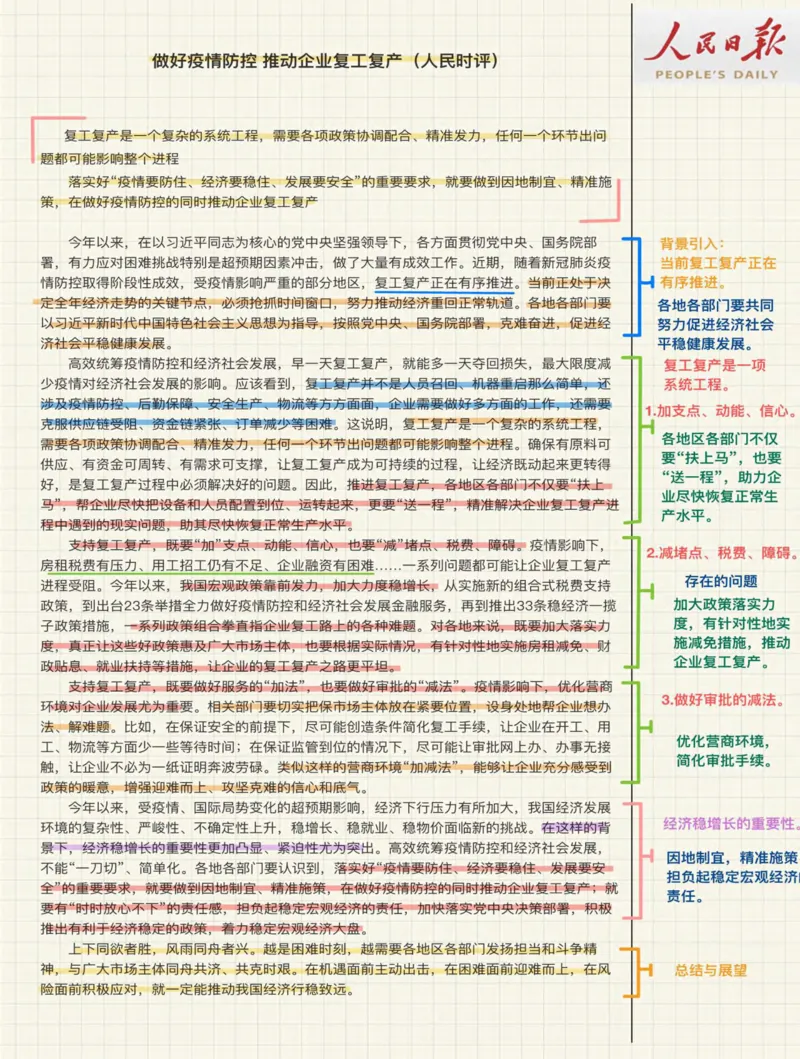 做好疫情防控 推动企业复工复产（人民时评）
人民日报
PEOPLE'S DAILY
复工复产是一个复杂的系统工程，需要各项政策协调配合、精准发力，任何一个环节出问
题都可能影响整个进程
落实好“疫情要防住、经济要稳住、发展要安全”的重要要求，就要做到因地制宜、精准施
策，在做好疫情防控的同时推动企业复工复产
今年以来，在以习近平同志为核心的党中央坚强领导下，各方面贯彻党中央、国务院部
署，有力应对困难挑战特别是超预期因素冲击，做了大量有成效工作。近期，随着新冠肺炎疫
情防控取得阶段性成效，受疫情影响严重的部分地区，复工复产正在有序推进。当前正处于决
定全年经济走势的关键节点，必须抢抓时间窗口，努力推动经济重回正常轨道。各地各部门要
以习近平新时代中国特色社会主义思想为指导，按照党中央、国务院部署，克难奋进，促进经
济社会平稳健康发展。
高效统筹疫情防控和经济社会发展，早一天复工复产，就能多一天夺回损失，最大限度减
少疫情对经济社会发展的影响。应该看到，复工复产并不是人员召回、机器重启那么简单，还
涉及疫情防控、后勤保障、安全生产、物流等方方面面，企业需要做好多方面的工作，还需要
克服供应链受阻、资金链紧张、订单减少等困难。这说明，复工复产是一个复杂的系统工程，
需要各项政策协调配合、精准发力，任何一个环节出问题都可能影响整个进程。确保有原料可
供应、有资金可周转、有需求可支撑，让复工复产成为可持续的过程，让经济既动起来更转得
好，是复工复产过程中必须解决好的问题。因此，推进复工复产，各地区各部门不仅要“扶上
马”，帮企业尽快把设备和人员配置到位、运转起来，更要“送一程”，精准解决企业复工复产进
程中遇到的现实问题，助其尽快恢复正常生产水平。
支持复工复产，既要“加”支点、动能、信心，也要“减”堵点、税费、障碍。疫情影响下，
房租税费有压力、用工招工仍有不足、企业融资有困难……一系列问题都可能让企业复工复产
进程受阻。今年以来，我国宏观政策靠前发力，加大力度稳增长，从实施新的组合式税费支持
政策，到出台23条举措全力做好疫情防控和经济社会发展金融服务，再到推出33条稳经济一揽
子政策措施，一系列政策组合拳直指企业复工路上的各种难题。对各地来说，既要加大落实力
度，真正让这些好政策惠及广大市场主体，也要根据实际情况，有针对性地实施房租减免、财
政贴息、就业扶持等措施，让企业的复工复产之路更平坦。
支持复工复产，既要做好服务的“加法”，也要做好审批的“减法”。疫情影响下，优化营商
环境对企业发展尤为重要。相关部门要切实把保市场主体放在紧要位置，设身处地帮企业想办
法、解难题。比如，在保证安全的前提下，尽可能创造条件简化复工手续，让企业在开工、用
工、物流等方面少一些等待时间；在保证监管到位的情况下，尽可能让审批网上办、办事无接
触，让企业不必为一纸证明奔波劳碌。类似这样的营商环境“加减法”，能够让企业充分感受到
政策的暖意，增强迎难而上、攻坚克难的信心和底气。
今年以来，受疫情、国际局势变化的超预期影响，经济下行压力有所加大，我国经济发展
环境的复杂性、严峻性、不确定性上升，稳增长、稳就业、稳物价面临新的挑战。在这样的背
景下，经济稳增长的重要性更加凸显、紧迫性尤为突出。高效统筹疫情防控和经济社会发展，
不能“一刀切”、简单化。各地各部门要认识到，落实好“疫情要防住、经济要稳住、发展要安
全”的重要要求，就要做到因地制宜、精准施策，在做好疫情防控的同时推动企业复工复产；就
要有“时时放心不下”的责任感，担负起稳定宏观经济的责任，加快落实党中央决策部署，积极
推出有利于经济稳定的政策，着力稳定宏观经济大盘。
上下同欲者胜，风雨同舟者兴。越是困难时刻，越需要各地区各部门发扬担当和斗争精
神，与广大市场主体同舟共济、共克时艰。在机遇面前主动出击，在困难面前迎难而上，在风
险面前积极应对，就一定能推动我国经济行稳致远。
背景引入：
当前复工复产正在
有序推进。
各地各部门要共同
努力促进经济社会
平稳健康发展。
复工复产是一项
系统工程。
1.加支点、动能、信心。
各地区各部门不仅
要“扶上马”，也要
“送一程”，助力企
业尽快恢复正常生
产水平。
2.减堵点、税费、障碍。
存在的问题
加大政策落实力
度，有针对性地实
施减免措施，推动
企业复工复产。
3.做好审批的减法。
优化营商环境，
简化审批手续。
经济稳增长的重要性。
因地制宜，精准施策
担负起稳定宏观经济的
责任。
总结与展望